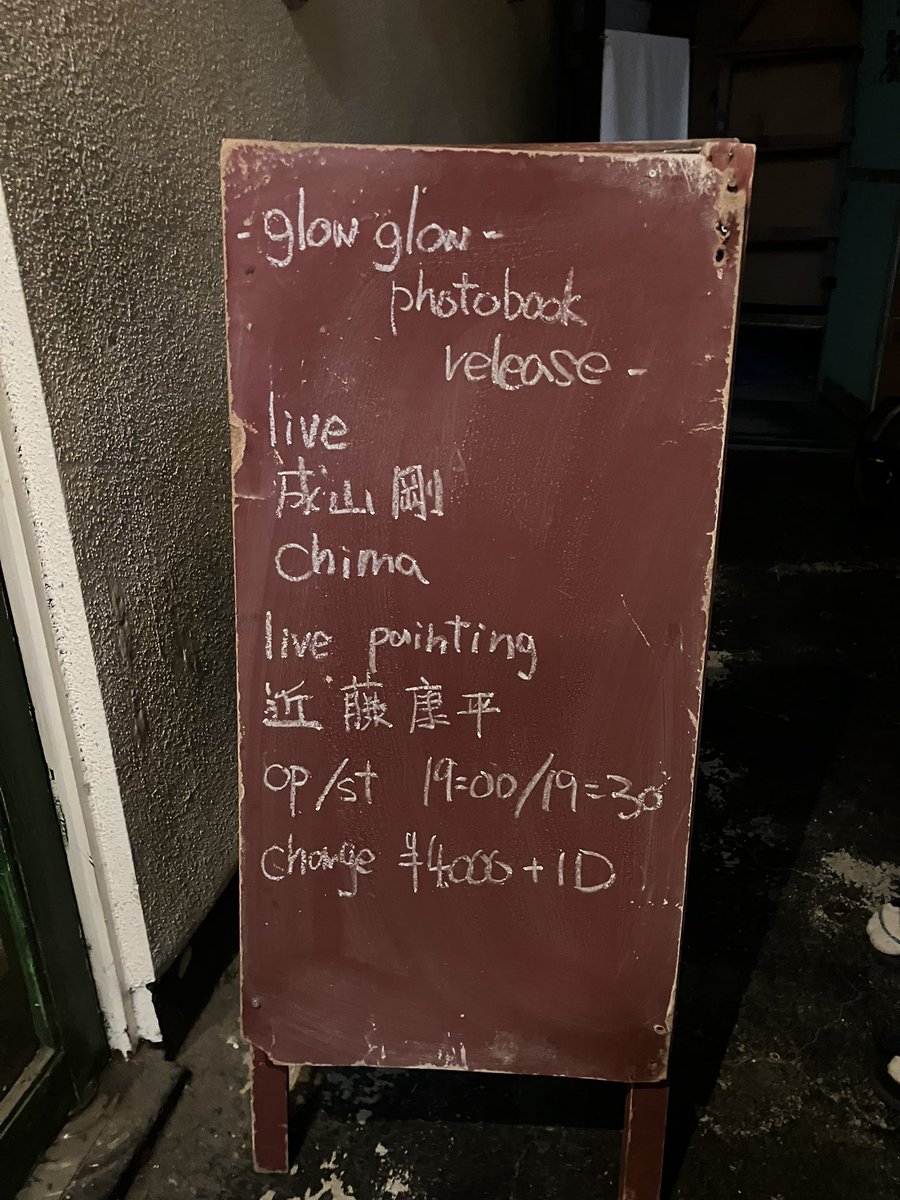 - glow glow -
photobook
release -
live
成山 剛
Chima
live painting
近藤康平
op/st 19:00/19:30
charge ¥4000+1D